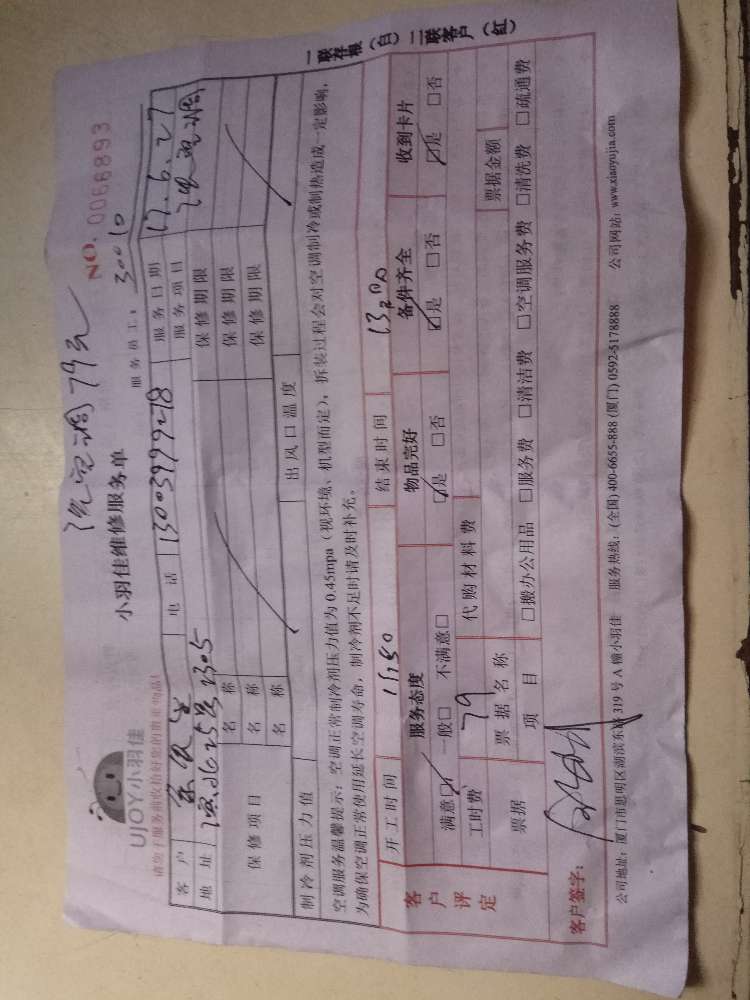 洗空调79元
UJOY小羽佳
小羽佳维修服务单
NO. 0066893
请您于服务前收拾好您的贵重物品!
服务员工: 30010
客户 电话 13003999278 服务日期 17.6.27
地址 2305 服务项目 洗空调
保修项目 名称 保修期限
名称 保修期限
名称 保修期限
制冷剂压力值 出风口温度
空调服务温馨提示:空调正常制冷剂压力值为0.45mpa(视环境、机型而定),拆装过程会对空调制冷或制热造成一定影响,
为确保空调正常使用延长空调寿命,制冷剂不足时请及时补充。
开工时间 11:50 结束时间 13:00
客户评定 服务态度 物品完好 备件齐全 收到卡片
满意☑ 一般□ 不满意□ ☑是 □否 ☑是 □否 ☑是 □否
工时费 79 代购材料费
票据 票据名称 票据金额
项目 □搬办公用品 □服务费 □清洁费 □空调服务费 □清洗费 □疏通费
客户签字:
公司地址:厦门市思明区湖滨东路319号A幢小羽佳 服务热线:(全国)400-6655-888 (厦门)0592-5178888 公司网站:www.xianyujia.com
一联存根(白)二联客户(红)